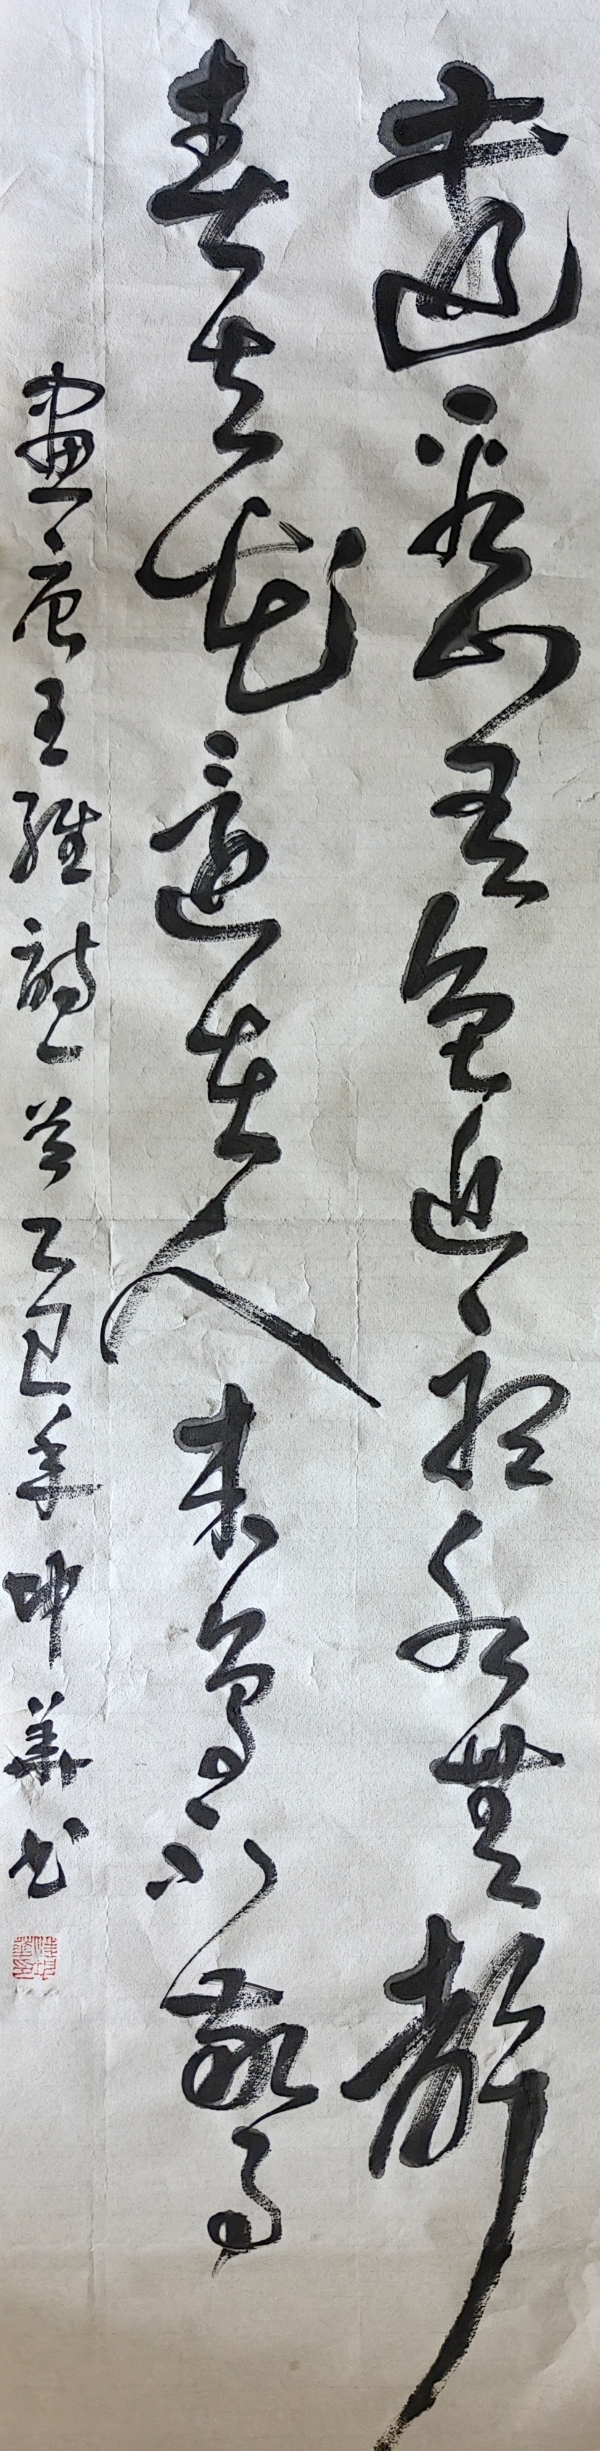 遠看山有色近聽水無聲
春去花還在人来鳥不驚
畫唐王維詩 乙巳年坤華书